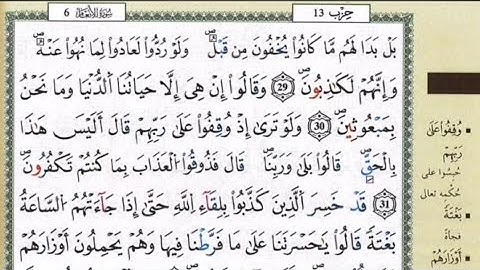 سورة الأنعام 6
حزب 13
بَلْ بَدَا لَهُم مَّا كَانُوا يُخْفُونَ مِن قَبْلُ وَلَوْ رُدُّوا لَعَادُوا لِمَا نُهُوا عَنْهُ
وَإِنَّهُمْ لَكَٰذِبُونَ 29 وَقَالُوا إِنْ هِىَ إِلَّا حَيَاتُنَا ٱلدُّنْيَا وَمَا نَحْنُ
بِمَبْعُوثِينَ 30 وَلَوْ تَرَىٰ إِذْ وُقِفُوا عَلَىٰ رَبِّهِمْ قَالَ أَلَيْسَ هَٰذَا
بِالْحَقِّ قَالُوا بَلَىٰ وَرَبِّنَا قَالَ فَذُوقُوا الْعَذَابَ بِمَا كُنتُمْ تَكْفُرُونَ
31 قَدْ خَسِرَ ٱلَّذِينَ كَذَّبُوا بِلِقَآءِ اللَّهِ حَتَّىٰ إِذَا جَآءَتْهُمُ السَّاعَةُ
بَغْتَةً قَالُوا يَٰحَسْرَتَنَا عَلَىٰ مَا فَرَّطْنَا فِيهَا وَهُمْ يَحْمِلُونَ أَوْزَارَهُمْ
وُقِفُوا عَلَىٰ
رَبِّهِمْ
حُبِسُوا على
حُكْمه تعالى
بَغْتَةً
فجأةً
أَوْزَارَهُمْ